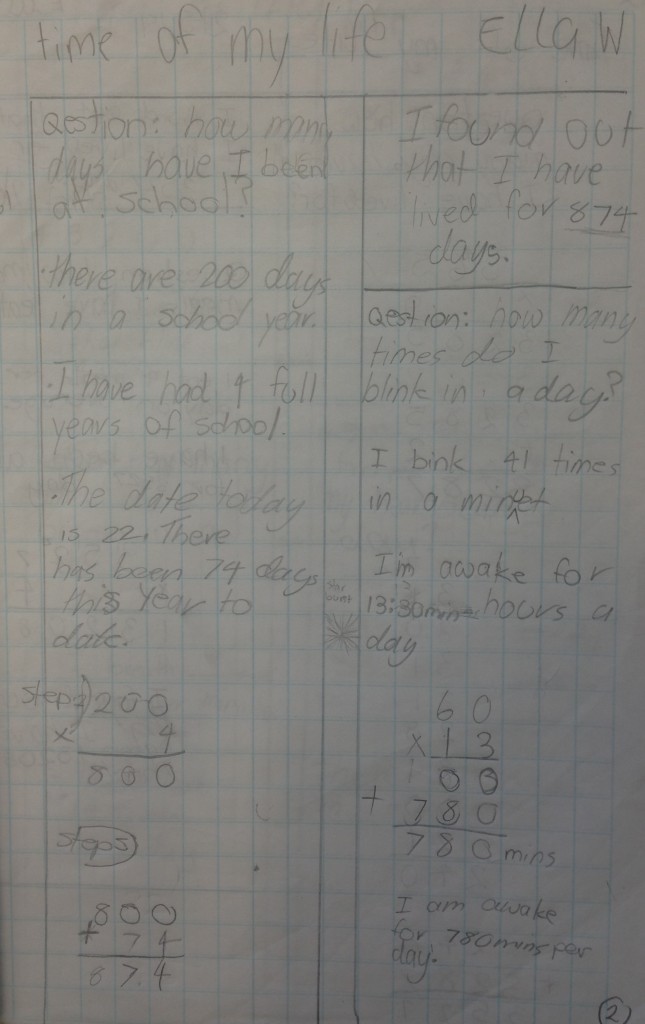 time of my life ELLA W
Qestion: how many
days have I been
at school?
• there are 200 days
in a school year.
• I have had 4 full
years of school.
• The date today
is 22. There
has been 74 days
this year to
date.
step1) 200
x 4
800
step2)
800
+ 74
874
I found out
that I have
lived for 874
days.
Qestion: how many
times do I
blink in a day?
I bink 41 times
in a minuet
I'm awake for
13:30mins hours a
day
60
x 13
00
+ 780
780 mins
I am awake
for 780mins per
day.
2